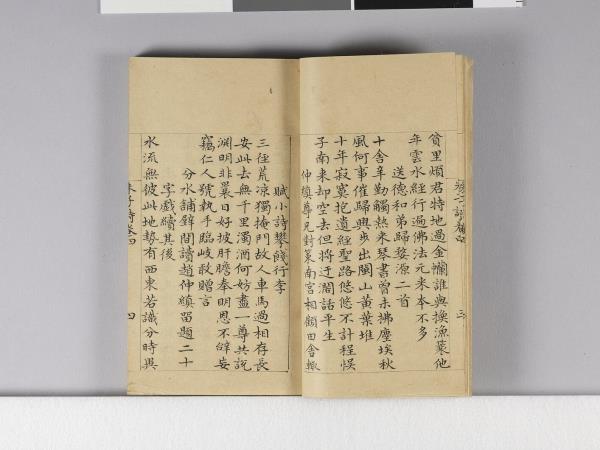 貧里煩君特地過金襴誰與換漁蓑他
年雲水經行遍佛法元來本不多
送德和弟歸婺源二首
十舍辛勤觸熱來琴書曾未拂塵埃秋
風何事催歸興步出閩山黃葉堆
十年寂寞抱遺經聖路悠悠不計程悞
子南來却空去但將迂闊話平生
仲縝尊兄對策南宮相顧田舍輒
三
賦小詩攀餞行李
三徑荒凉獨掩門故人車馬過相存長
安此去無千里濁酒何妨盡一尊共說
淵明非曩日好披肝膽奉明恩不辭妄
竊仁人號執手臨岐敢贈言
分水舖壁間讀趙仲縝留題二十
字戲續其後
水流無彼此地勢有西東若識分時異
四